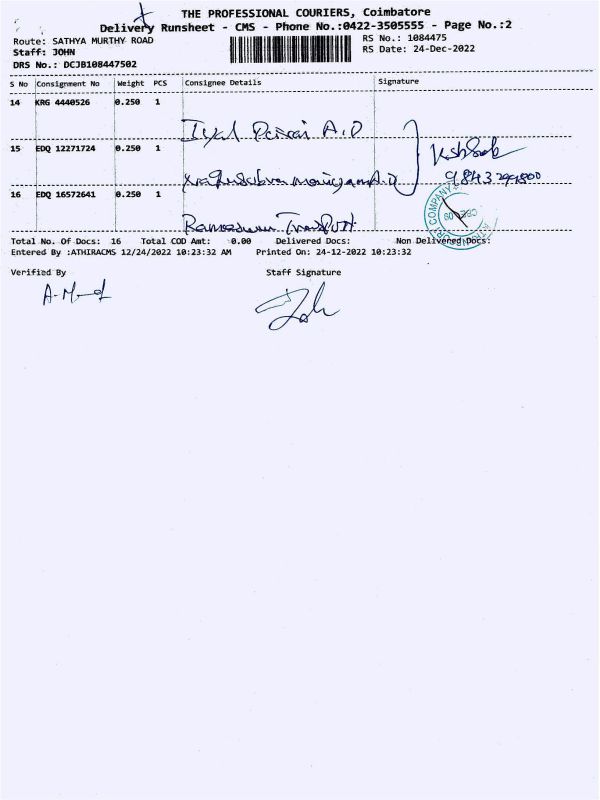 THE PROFESSIONAL COURIERS, Coimbatore
Delivery Runsheet - CMS - Phone No.:0422-3505555 - Page No.:2
Route: SATHYA MURTHY ROAD
RS No.: 1084475
Staff: JOHN
RS Date: 24-Dec-2022
DRS No.: DCJB108447502
S No Consignment No Weight PCS Consignee Details Signature
14 KRG 4440526 0.250 1
A.D
15 EDQ 12271724 0.250 1
A.D
16 EDQ 16572641 0.250 1
COMPANY
Transport
Total No. Of Docs: 16 Total COD Amt: 0.00 Delivered Docs: Non Delivered Docs:
Entered By :ATHIRACMS 12/24/2022 10:23:32 AM Printed On: 24-12-2022 10:23:32
Verified By Staff Signature